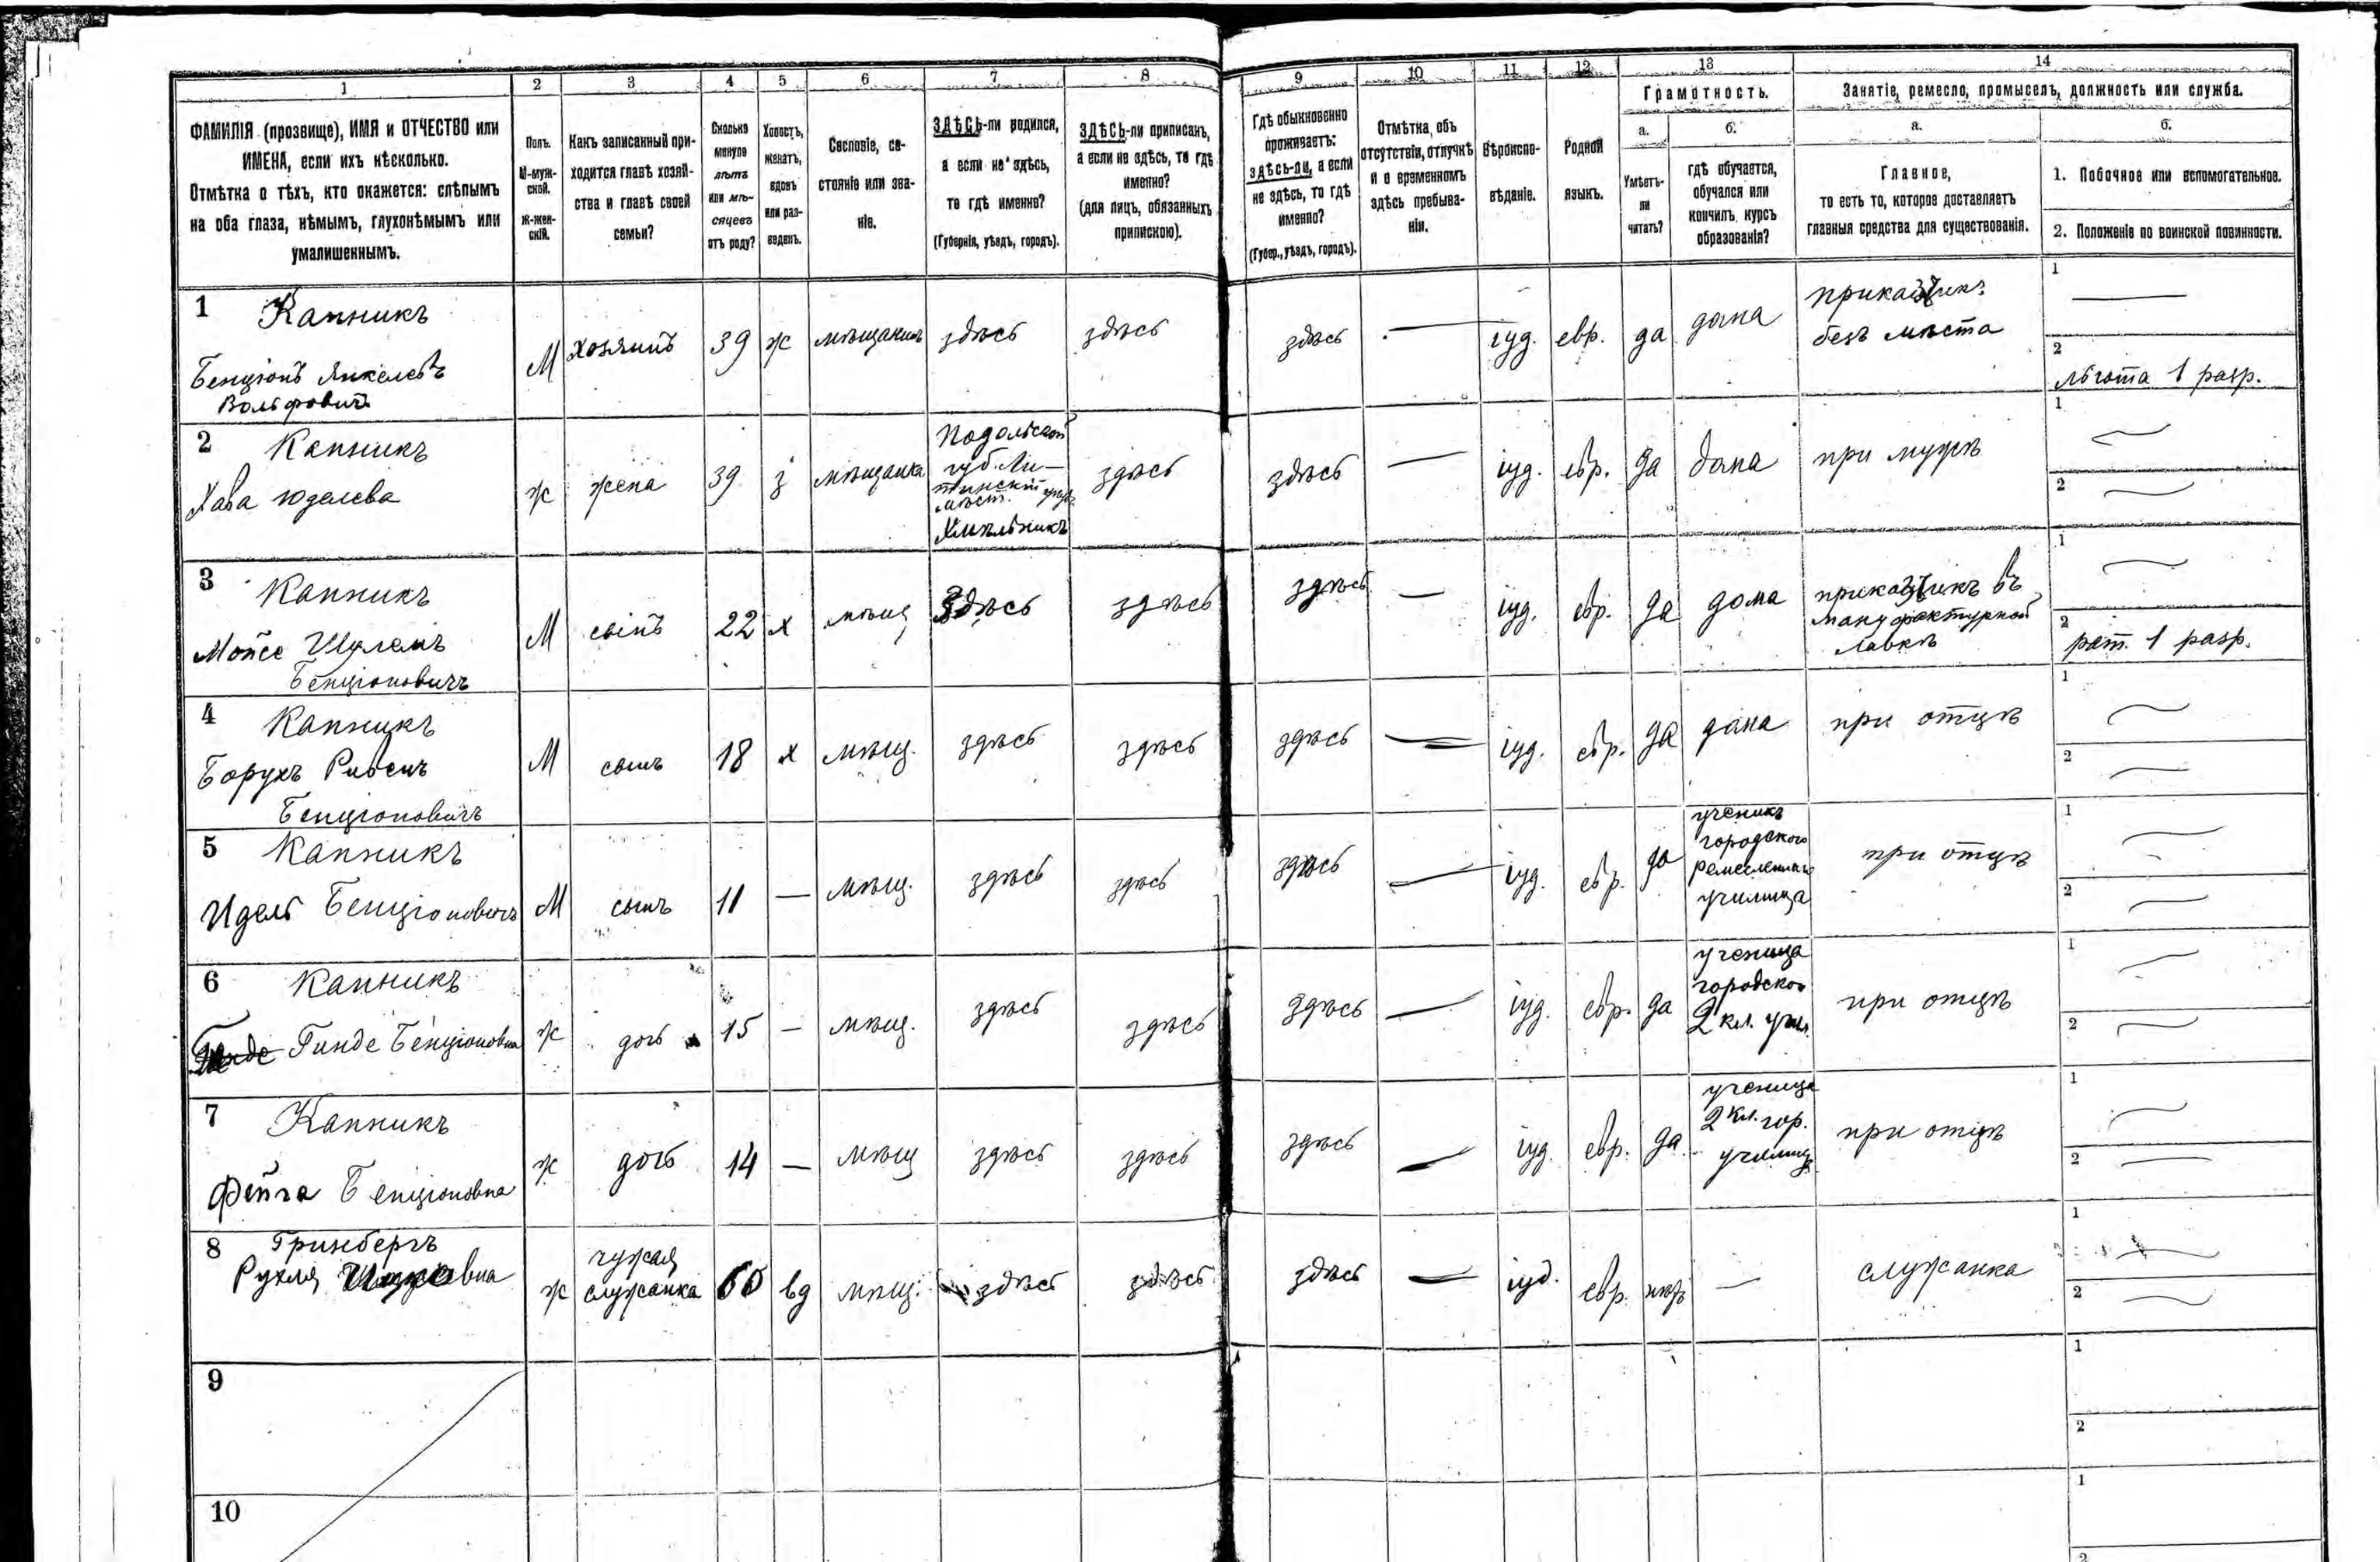 1 2 3 4 5 6 7 8 9 10 11 12 13 14
ФАМИЛІЯ (прозвище), ИМЯ и ОТЧЕСТВО или
ИМЕНА, если ихъ нѣсколько.
Отмѣтка о тѣхъ, кто окажется: слѣпымъ
на оба глаза, нѣмымъ, глухонѣмымъ или
умалишеннымъ.
Полъ.
М-муж-
ской.
Ж-жен-
скій.
Какъ записанный при-
ходится главѣ хозяй-
ства и главѣ своей
семьи?
Сколько
минуло
лѣтъ
или мѣ-
сяцевъ
отъ роду?
Холостъ,
женатъ,
вдовъ
или раз-
веденъ.
Сословіе, со-
стояніе или зва-
ніе.
ЗДѢСЬ-ли родился,
а если не здѣсь,
то гдѣ именно?
(Губернія, уѣздъ, городъ).
ЗДѢСЬ-ли приписанъ,
а если не здѣсь, то гдѣ
именно?
(для лицъ, обязанныхъ
припискою).
Гдѣ обыкновенно
проживаетъ:
здѣсь-ли, а если
не здѣсь, то гдѣ
именно?
(Губер., уѣздъ, городъ).
Отмѣтка объ
отсутствіи, отлучкѣ
и о временномъ
здѣсь пребыва-
ніи.
Вѣроиспо-
вѣданіе.
Родной
языкъ.
Грамотность.
а.
Умѣетъ-
ли
читать?
б.
гдѣ обучается,
обучался или
кончилъ курсъ
образованія?
Занятіе, ремесло, промыселъ, должность или служба.
а.
Главное,
то есть то, которое доставляетъ
главныя средства для существованія.
б.
1. Побочное или вспомогательное.
2. Положеніе по воинской повинности.
1 Капникъ
Бенціонъ Янкелевъ
Вольфовичъ
М хозяинъ 39 ж мѣщанинъ здѣсь здѣсь здѣсь — іуд. евр. да дома
приказчикъ
безъ мѣста
1 —
2 льгота 1 разр.
2 Капникъ
Хава Юделева
ж жена 39 з мѣщанка
Подольской
губ. Ли-
тинскій уѣздъ
мѣст.
Хмѣльникъ
здѣсь здѣсь — іуд. евр. да дома при мужѣ
1 —
2 —
3 Капникъ
Мойсе Шулемъ
Бенціоновичъ
М сынъ 22 х мѣщ здѣсь здѣсь здѣсь — іуд. евр. да дома
приказчикъ въ
мануфактурной
лавкѣ
1 —
2 рат. 1 разр.
4 Капникъ
Борухъ Рувенъ
Бенціоновичъ
М сынъ 18 х мѣщ. здѣсь здѣсь здѣсь — іуд. евр. да дома при отцѣ
1 —
2 —
5 Капникъ
Идель Бенціоновичъ
М сынъ 11 — мѣщ. здѣсь здѣсь здѣсь — іуд. евр. да
ученикъ
городского
ремесленнаго
училища
при отцѣ
1 —
2 —
6 Капникъ
Гинде Бенціоновна
ж дочь 15 — мѣщ. здѣсь здѣсь здѣсь — іуд. евр. да
ученица
городского
2 кл. учил.
при отцѣ
1 —
2 —
7 Капникъ
Фейга Бенціоновна
ж дочь 14 — мѣщ здѣсь здѣсь здѣсь — іуд. евр. да
ученица
2 кл. гор.
училищ.
при отцѣ
1 —
2 —
8 Гринбергъ
Рухля
ж
чужая
служанка
60 вд мѣщ. здѣсь здѣсь здѣсь — іуд. евр. нѣтъ — служанка
1 —
2 —
9
1
2
10
1
2